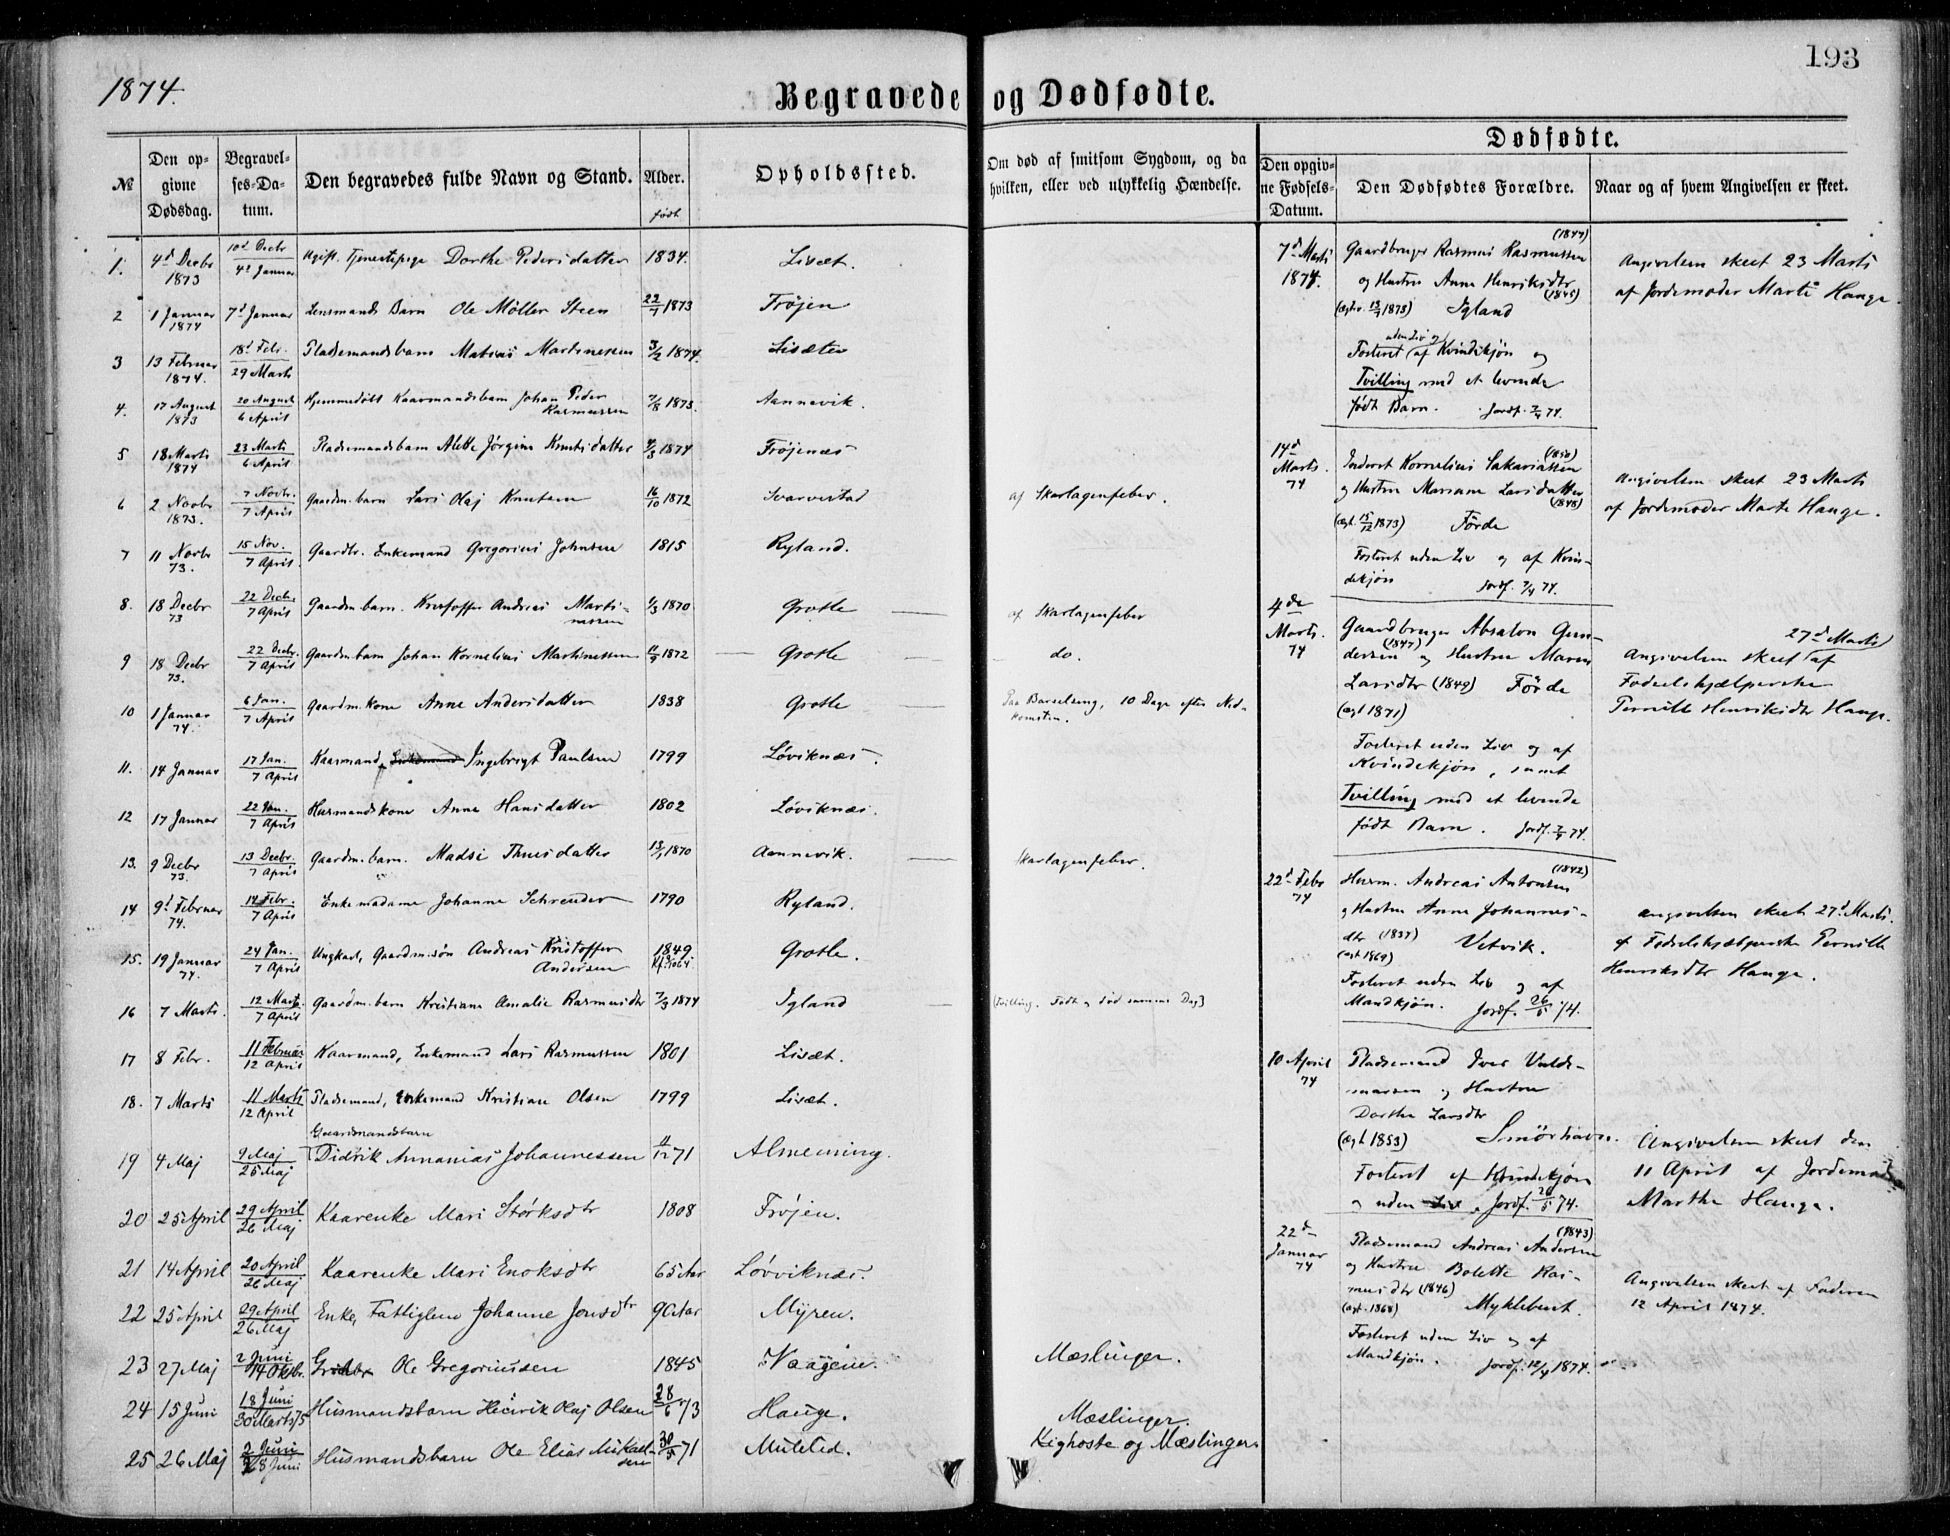 193
1874.
Begravede og Dødfødte.
№
Den opgivne Dødsdag.
Begravelses-Datum.
Den begravedes fulde Navn og Stand.
Alder.
født
Opholdssted.
Om død af smitsom Sygdom, og da hvilken, eller ved ulykkelig Hændelse.
Dødfødte.
Den opgivne Fødsels-Datum.
Den Dødfødtes Forældre.
Naar og af hvem Angivelsen er skeet.
1. 4d Decbr 1873 10d Decbr 4d Januar Ugift. Tjenestepige Dorthe Pedersdatter 1834. Lisæt.
2 1 Januar 1874 7d Januar Lensmands Barn Ole Møller Steen 22/7 1873 Frøjen
3 13 Februar 1874. 18d Febr. 29 Marts Pladsemandsbarn Matias Martinessen 3/2 1874. Lisæter
4. 17 August 1873 20 August 6 April Hjemmedøbt Kaarmandsbarn Johan Peder Rasmussen 7/8 1873. Aannevik.
5 18 Marts 1874 23 Marts 6 April Pladsemandsbarn Alette Jørgine Knutsdatter 4/3 1874 Frøjenæs
6 2 Novbr 1873. 7 Novbr. 7 April Gaardm. barn Lars Olaj Knutsen 16/10 1872 Svarvestad af Skarlagenfeber.
7 11 Novbr 73. 15 Nov. 7 April. Gaardbr. Enkemand Gregorius Johnsen 1815 Ryland.
8. 18 Decbr 73 22 Decbr 7 April Gaardm. barn. Kristoffer Andreas Martinessen 1/3 1870 Grotle af Skarlagenfeber
9 18 Decbr 73. 22 Decbr. 7 April Gaardm. barn Johan Kornelius Martinessen 11/9 1872 Grotle do.
10 1 Januar 74. 6 Jan. 7 April Gaardm. kone Anne Andersdatter 1838 Grotle Paa Barselseng, 10 Dage efter Nedkomsten.
11. 14 Januar 17 Jan. 7 April Kaarmand, Enkemand Ingebrigt Paulsen 1799 Løviknæs.
12 17 Januar 22 Jan. 7 April Husmandskone Anne Hansdatter 1802 Løviknæs.
13. 9 Decbr 73. 13 Decbr. 7 April Gaardm. barn. Madsi Thuesdatter 13/1 1870 Aannevik. Skarlagenfeber.
14 9d Februar 74. 14 Febr. 7 April Enkemadame Johanne Schreuder 1790 Ryland.
15. 19 Januar 74. 24 Jan. 7 April Ungkarl, Gaardm. søn Andreas Kristoffer Andersen 1849 Grotle.
16 7 Marts. 12 Marts. 7 April Gaardm. barn Kristiane Amalie Rasmusdtr 7/3 1874 Igland (Tvilling. Født og død sammes Dag)
17 8 Febr. 11 Februar 12 April Kaarmand, Enkemand Lars Rasmussen 1801 Lisæt.
18. 7 Marts 11 Marts 12 April Pladsemand, Enkemand Kristian Olsen 1799 Lisæt.
19 4 Maj 9 Maj 25 Maj Gaardmandsbarn Didrik Annanias Johannessen 11/12 71 Almenning.
20 25 April 29 April 26 Maj Kaarenke Mari Størksdtr 1808 Frøjen.
21 14 April 20 April 26 Maj Kaarenke Mari Enoksdtr 65 Aar Løvviknæs.
22 25 April 29 April 26 Maj Enke, Fattiglem Johanne Jonsdtr 90 Aar Myren.
23 27 Maj 2 Juni 14 Oktbr. Ole Gregoriussen 1845 Vaagene. Mæslinger.
24 15 Juni 18 Juni 30 Marts 75 Husmandsbarn Henrik Olaj Olsen 28/6 73 Hauge. Mæslinger.
25 26 Maj 2 Juni 28 Juni Husmandsbarn Ole Elias Mikaelsen 30/5 71 Mulestd. Kighoste og Mæslinger.
7d Marts 1874.
Gaardbruger Rasmus Rasmussen (1847)
og Hustru Anne Henriksdtr (1845)
(ægtev. 13/7 1873) Igland
Fosteret uden Liv og af Kvindekjøn og
Tvilling med et levende
født Barn. Jordf. 7/4 74.
Angivelsen skeet 23 Marts
af Jordemoder Marte Hauge.
14d Marts. 74
Enderet Kornelius Sakariassen (1850)
og Hustru Mariane Larsdatter (1848)
(ægt. 15/12 1873) Førde
Fosteret uden Liv og af Kvindekjøn Jordf. 7/4 74.
Angivelsen skeet 23 Marts
af Jordemoder Marte Hauge.
4de Marts. 74
Gaardbruger Absalon Gundersen (1847) og Hustru Maren
Larsdtr (1849) Førde
(ægt 1871)
Fosteret uden Liv og af
Kvindekjøn, samt
Tvilling med et levende
født Barn. Jordf. 7/4 74.
Angivelsen skeet 27d Marts af
Fødselshjælperske
Pernille Henriksdtr Hauge.
22d Febr 74
Husm. Andreas Antonsen (1842)
og Hustru Anne Johannesdtr (1837) Vetvik.
(ægt 1869)
Fosteret uden Liv og af
Mandkjøn. Jordf. 26/5 74.
Angivelsen skeet 27d Marts.
af Fødselshjælperske Pernille
Henriksdtr Hauge.
10 April 74
Pladsemand Iver Valdemarsen og Hustru
Dorthe Larsdtr
(ægt 1853) Smørhavn.
Fosteret af Kvindekjøn
og uden Liv. Jordf. 26/5 74.
Angivelsen skeet den
11 April af Jordemoder
Marthe Hauge.
22d Januar 74
Pladsemand Andreas Andersen (1843)
og Hustru Bolette Rasmusdtr (1846)
(ægt. 1868) Myklebust.
Fosteret uden Liv og af
Mandkjøn. Jordf. 12/4 1874.
Angivelsen skeet af Faderen
12 April 1874.